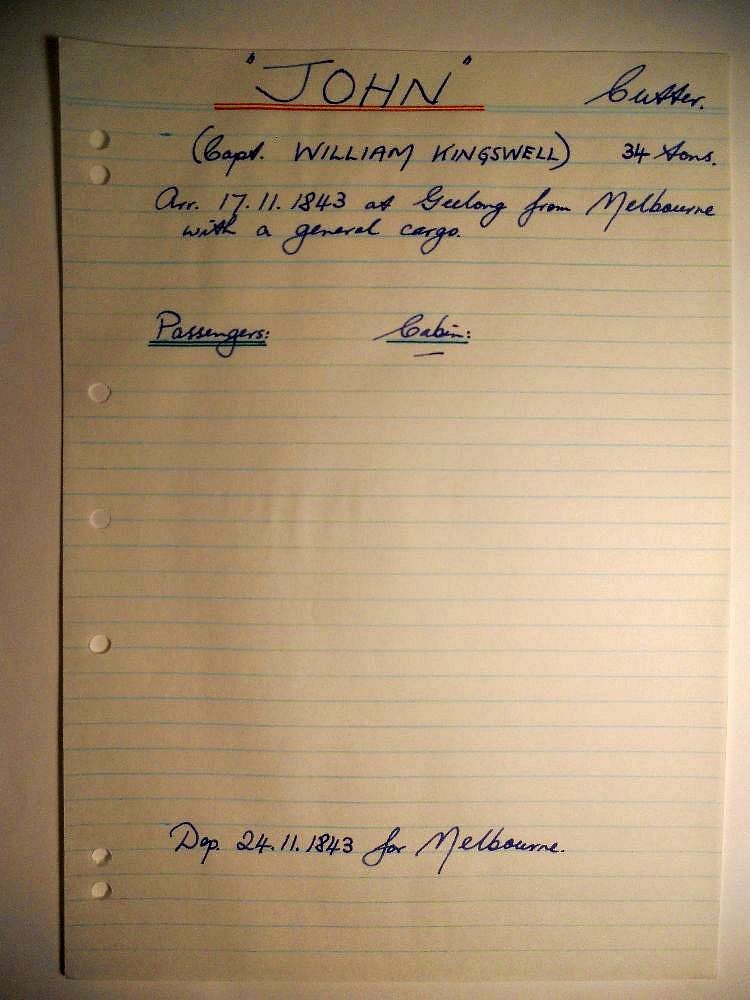 "JOHN" Cutter.
(Capt. WILLIAM KINGSWELL) 34 tons.
Arr. 17.11.1843 at Geelong from Melbourne
with a general cargo.
Passengers: Cabin:
—
Dep. 24.11.1843 for Melbourne.